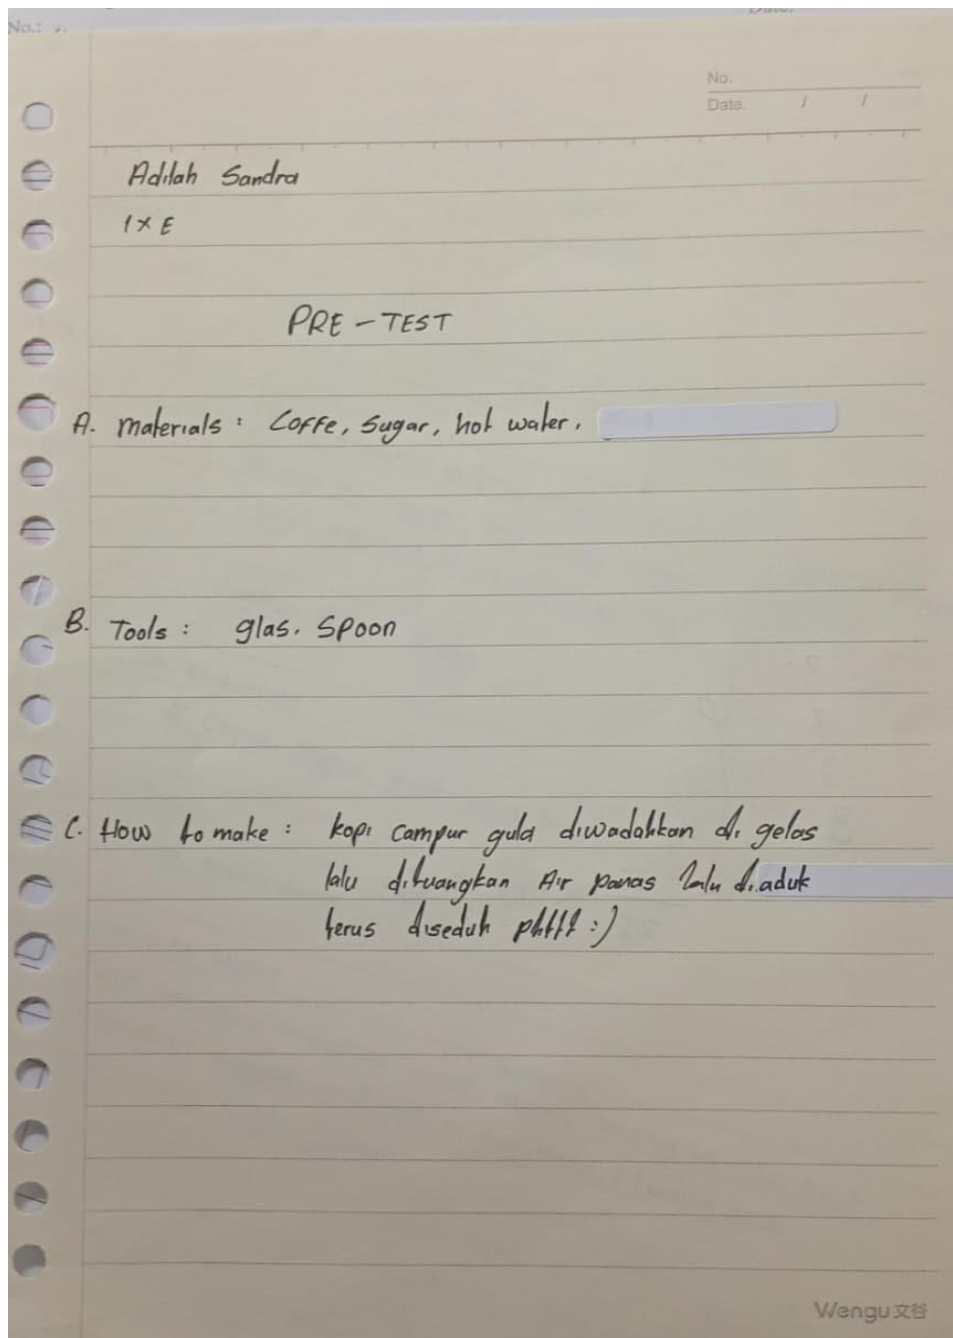 No.:
No.
Date. / /
Adilah Sandra
IX E
PRE - TEST
A. Materials : Coffe, Sugar, hot water,
B. Tools : glas. Spoon
C. How to make : kopi campur gula diwadahkan di gelas
lalu dituangkan Air panas lalu diaduk
terus diseduh :)
Wengu文谷